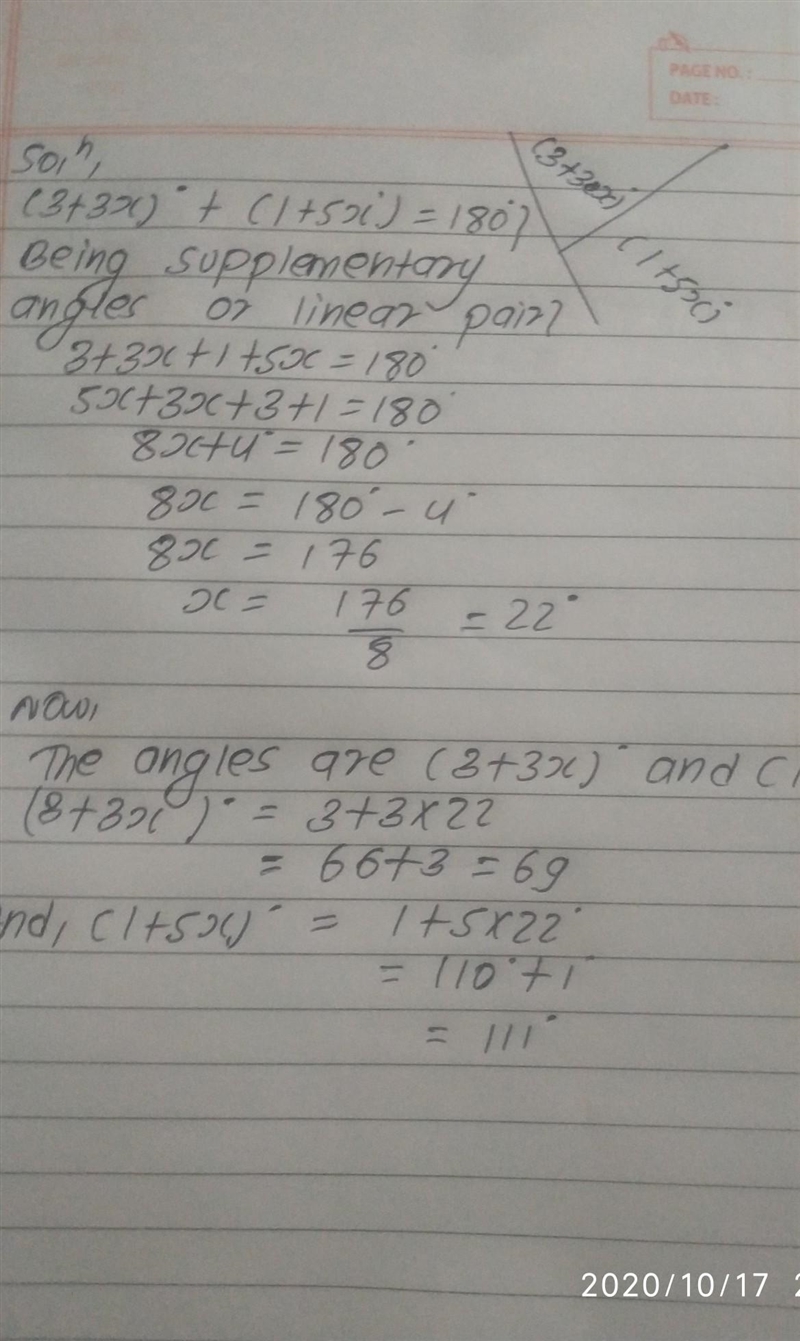 PAGE NO.:
DATE:
Soln,
(3+3x)° + (1+5x°) = 180°}
Being supplementary
angles or linear pair}
3+3x+1+5x=180°
5x+3x+3+1=180°
8x+4°=180°
8x = 180°-4°
8x = 176
x = 176/8 = 22°
(3+3x)°
(1+5x)°
Now,
The angles are (3+3x)° and (1
(3+3x°)° = 3+3×22
= 66+3 = 69
nd, (1+5x)° = 1+5×22°
= 110°+1°
= 111°
2020/10/17 2